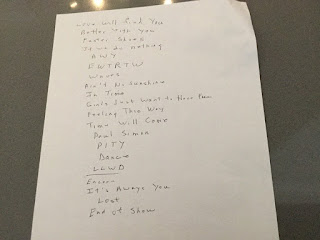 Love Will Find You
Better With You
Faster Shook
If we do nothing
AWY
EWTRTW
Waves
Ain't No Sunshine
In Time
Girls Just Want to Have Fun
Feeling This Way
Time Will Come
Paul Simon
PITY
Dance
LLWD
Encore
It's Always You
Lost
End of Show